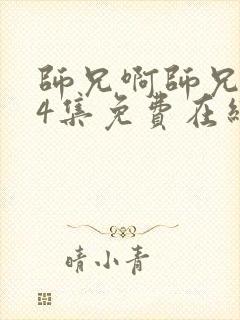 師兄啊師兄
4集免費在線
晴小青